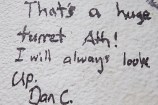 That's a huge
turret Ath!
I will always look
up.
Dan C.